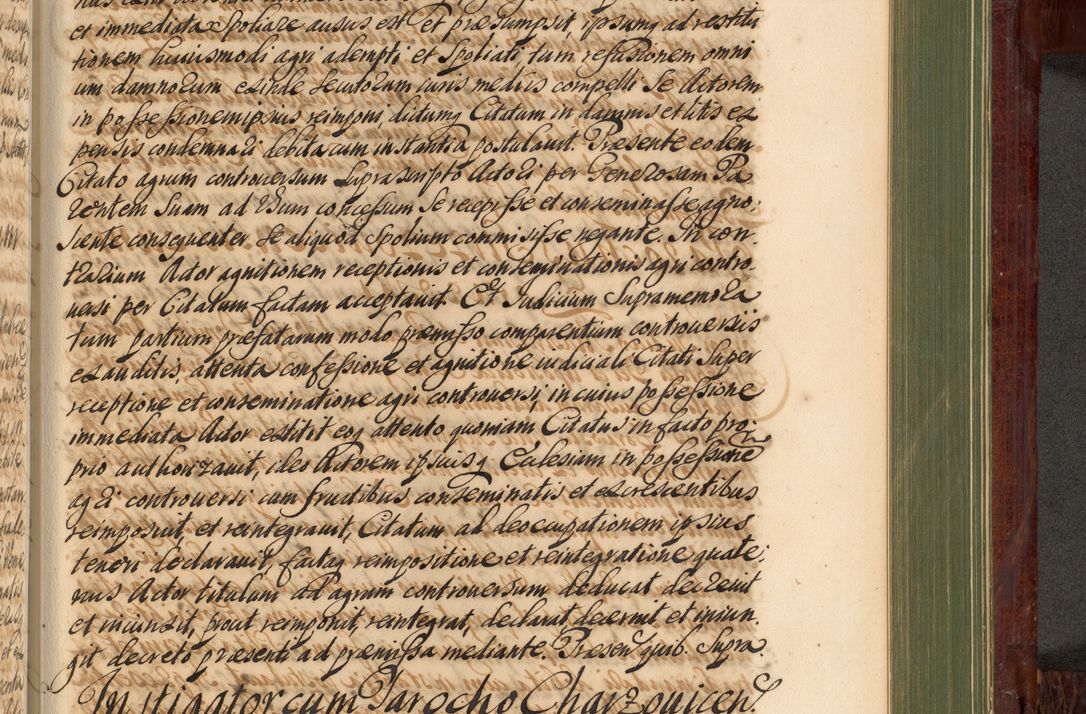 et immediata spoliare ausus est et præsumpsit, ipsumq ad restitu
tionem huiusmodi agri adempti et Spoliati, tum refusionem omni
um damnorum exinde secutorum iuris mediis compelli Se Actorem
in possessionem ipsius reimponi, dictumq Citatum in damnis et litis ex
pensis condemnari debita cum instantia postulauit. Præsente eodem
Citato agrum controuersum suprascripto Actori per Generosam Pa
rentem Suam ad usum concessum Se recepisse et conseminasse agno,
scente consequenter se aliquod Spolium commisisse negante. In con,
trarium Actor agnitionem receptionis et conseminationis agri contro,
uersi per Citatum factam acceptauit. Et Judicium Supramemora
tum partium præfatarum modo præmisso comparentium controuersiis
exauditis, attenta confessione et agnitione iudiciali Citati Super
receptione et conseminatione agri controuersi, in cuius possessione
immediata Actor extitit eoq attento quoniam Citatus in facto pro,
prio authorizauit, ideo Actorem ipsiusq Ecclesiam in possessione
agri controuersi cum fructibus conseminatis et excrescentibus
reimposuit, et reintegrauit, Citatum ad deoccupationem ipsius
teneri declarauit, factaq reimpositione et reintegratione quate,
nus Actor titulum ad agrum controuersum deducat decreuit
et iniunxit, prout reimponit, reintegrat, declarat decernit et iniun,
git decreto præsenti ad præmissa mediante. Præsen quib. Supra
Instigator cum Parocho Charzouicen.